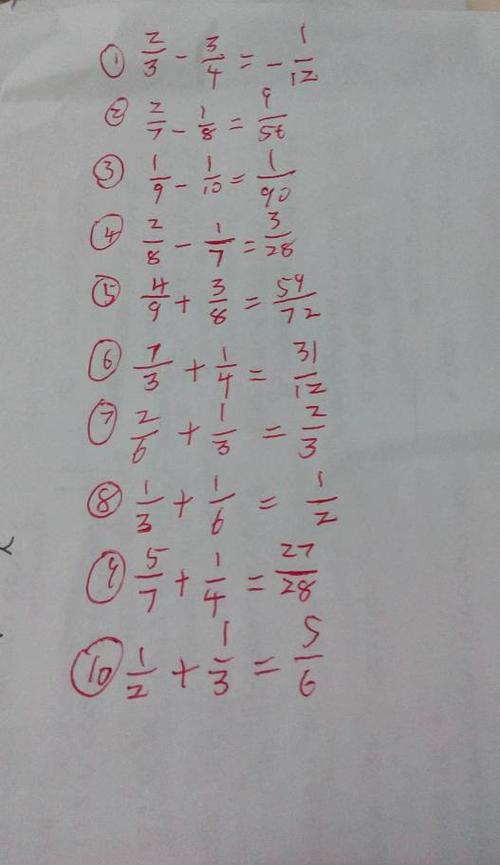 ① 2/3 - 3/4 = - 1/12
② 2/7 - 1/8 = 9/56
③ 1/9 - 1/10 = 1/90
④ 2/8 - 1/7 = 3/28
⑤ 4/9 + 3/8 = 59/72
⑥ 7/3 + 1/4 = 31/12
⑦ 2/6 + 1/3 = 2/3
⑧ 1/3 + 1/6 = 1/2
⑨ 5/7 + 1/4 = 27/28
⑩ 1/2 + 1/3 = 5/6